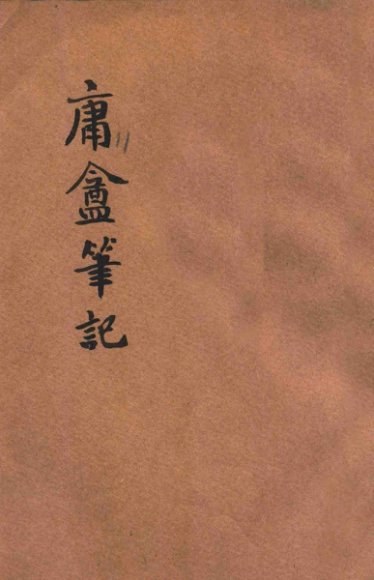 庸盦筆記